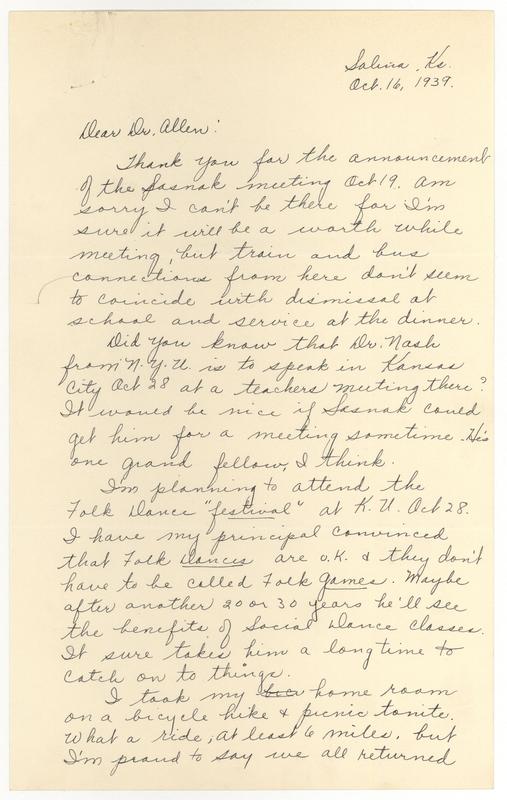 Salina, Ks.
Oct. 16, 1939.
Dear Dr. Allen:
Thank you for the announcement
of the Sasnak meeting Oct 19. Am
sorry I can't be there for I'm
sure it will be a worth while
meeting, but train and bus
connections from here don't seem
to coincide with dismissal at
school and service at the dinner.
Did you know that Dr. Nash
from N.Y.U. is to speak in Kansas
City Oct 28 at a teachers meeting there?
It would be nice if Sasnak could
get him for a meeting sometime. He's
one grand fellow, I think.
I'm planning to attend the
Folk Dance "festival" at K.U. Oct 28.
I have my principal convinced
that Folk Dances are O.K. & they don't
have to be called Folk Games. Maybe
after another 20 or 30 years he'll see
the benefits of Social Dance classes.
It sure takes him a long time to
catch on to things.
I took my home room
on a bicycle hike & picnic tonite.
What a ride, at least 6 miles, but
I'm proud to say we all returned